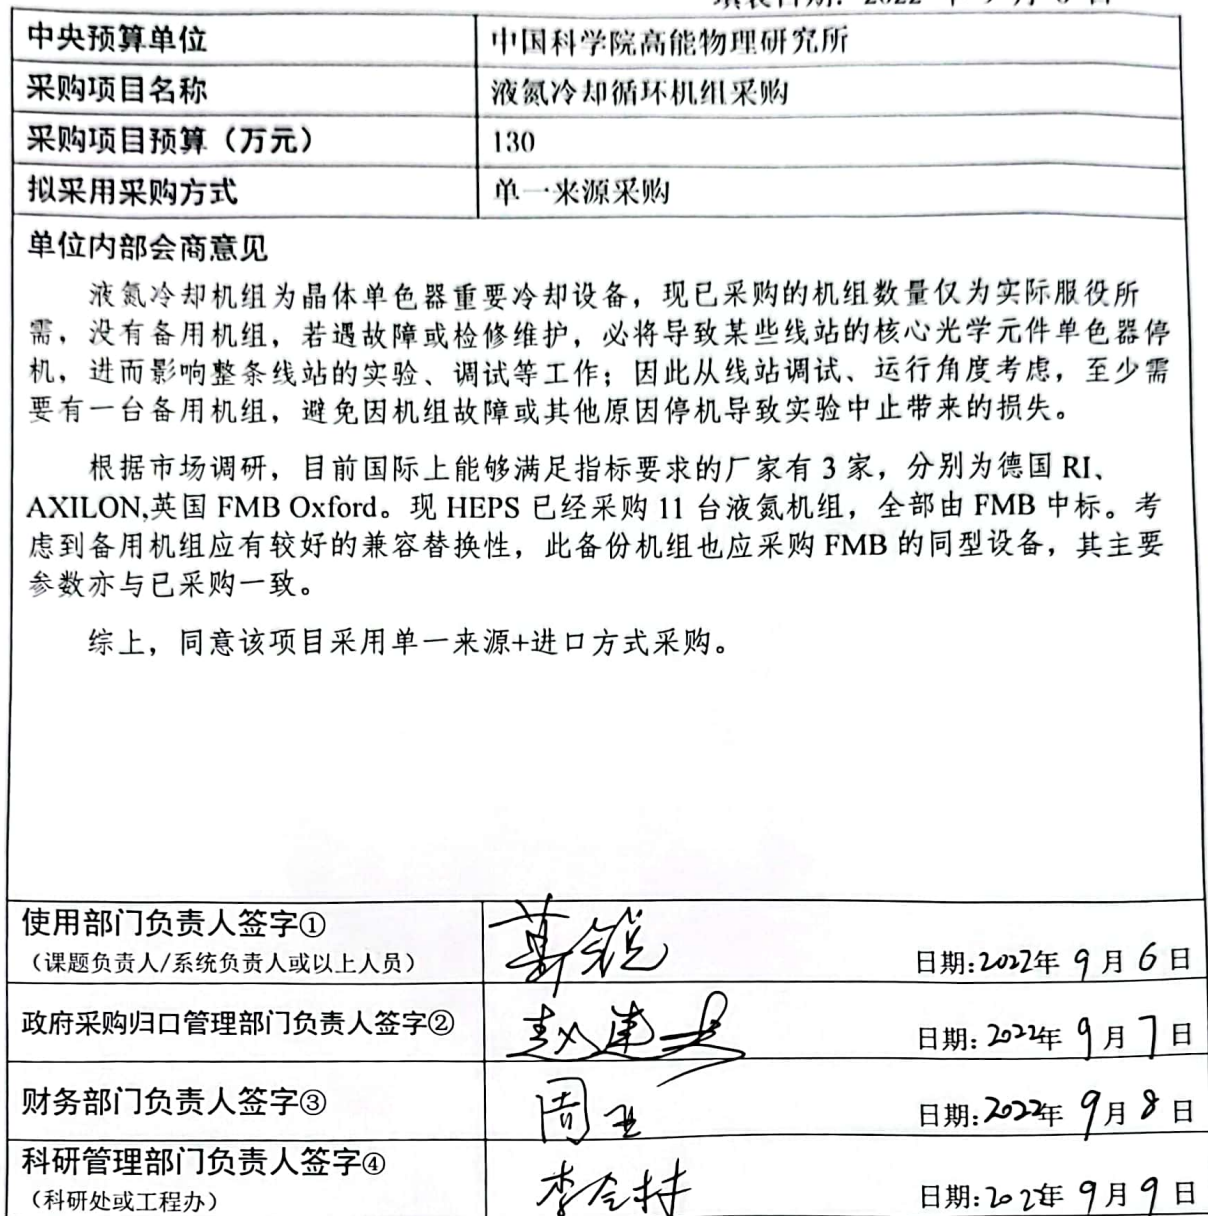 填表日期: 2022 年 9 月 6 日
中央预算单位 中国科学院高能物理研究所
采购项目名称 液氮冷却循环机组采购
采购项目预算（万元） 130
拟采用采购方式 单一来源采购
单位内部会商意见
液氮冷却机组为晶体单色器重要冷却设备，现已采购的机组数量仅为实际服役所
需，没有备用机组，若遇故障或检修维护，必将导致某些线站的核心光学元件单色器停
机，进而影响整条线站的实验、调试等工作；因此从线站调试、运行角度考虑，至少需
要有一台备用机组，避免因机组故障或其他原因停机导致实验中止带来的损失。
根据市场调研，目前国际上能够满足指标要求的厂家有 3 家，分别为德国 RI、
AXILON,英国 FMB Oxford。现 HEPS 已经采购 11 台液氮机组，全部由 FMB 中标。考
虑到备用机组应有较好的兼容替换性，此备份机组也应采购 FMB 的同型设备，其主要
参数亦与已采购一致。
综上，同意该项目采用单一来源+进口方式采购。
使用部门负责人签字①
（课题负责人/系统负责人或以上人员） 日期:2022年 9 月 6 日
政府采购归口管理部门负责人签字② 日期: 2022年 9 月 7 日
财务部门负责人签字③ 周 日期:2022年 9月 8 日
科研管理部门负责人签字④
（科研处或工程办） 李 日期:2022年 9月 9 日